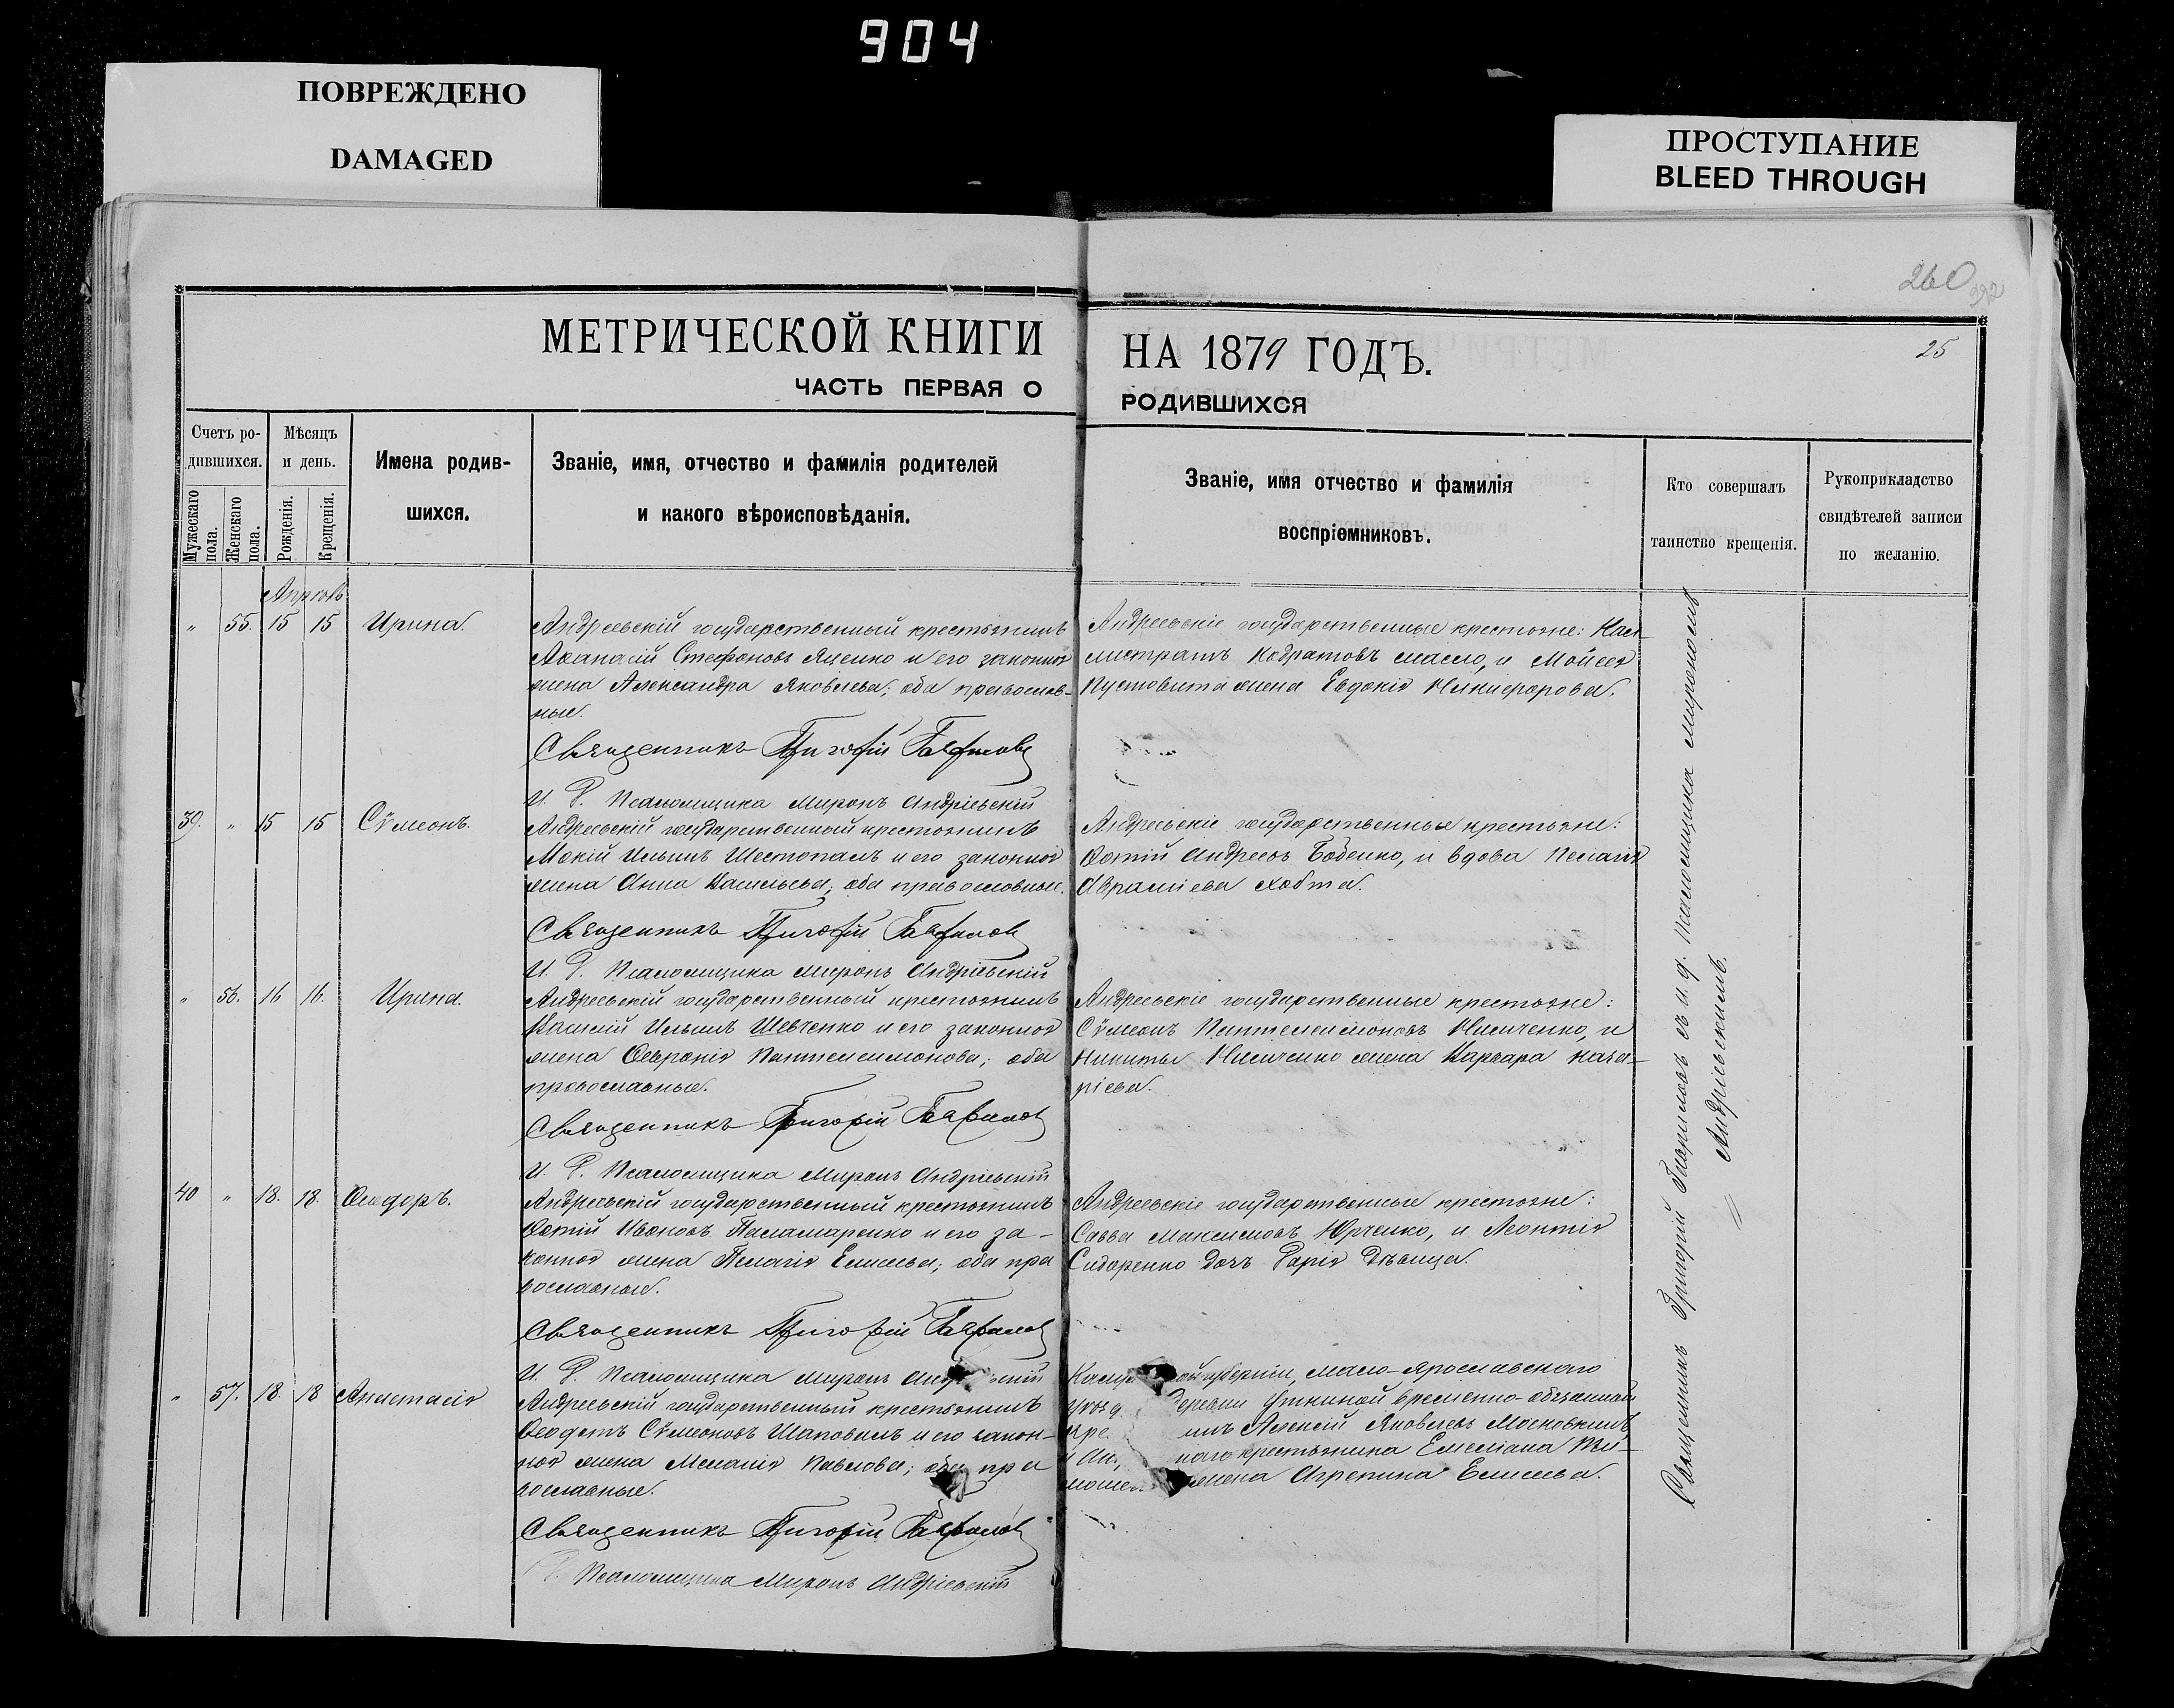 904
ПОВРЕЖДЕНО
DAMAGED
ПРОСТУПАНИЕ
BLEED THROUGH
260
25
МЕТРИЧЕСКОЙ КНИГИ
НА 1879 ГОДЪ.
ЧАСТЬ ПЕРВАЯ О
РОДИВШИХСЯ
Счетъ ро-
дившихся.
Мужескаго пола.
Женскаго пола.
Мѣсяцъ
и день.
Рожденія.
Крещенія.
Имена родив-
шихся.
Званіе, имя, отчество и фамилія родителей
и какого вѣроисповѣданія.
Званіе, имя отчество и фамилія
воспріемниковъ.
Кто совершалъ
таинство крещенія.
Рукоприкладство
свидѣтелей записи
по желанію.
Апрѣль
" 55. 15 15 Ирина.
Андреевскій государственный крестьянинъ
Аѳанасій Стефановъ Яценко и его законная
жена Александра Яковлева; оба православ-
ные.
Священникъ Григорій Гавриловъ
И. Д. Псаломщика Миронъ Андріевскій
Андреевскіе государственные крестьяне: Кали-
стратъ Кодратовъ Масло, и Мойсея
Пустовита жена Евдокія Никифорова.
39. " 15 15 Сѵмеонъ.
Андреевскій государственный крестьянинъ
Мокій Ильинъ Шестопалъ и его законная
жена Анна Васильева; оба православные.
Священникъ Григорій Гавриловъ
И. Д. Псаломщика Миронъ Андріевскій
Андреевскіе государственные крестьяне:
Фотій Андреевъ Бабенко, и вдова Пелагія
Авраміева Хобта.
" 56. 16 16. Ирина.
Андреевскій государственный крестьянинъ
Василій Ильинъ Шевченко и его законная
жена Февронія Пантелеимонова; оба
православные.
Священникъ Григорій Гавриловъ
И. Д. Псаломщика Миронъ Андріевскій
Андреевскіе государственные крестьяне:
Сѵмеонъ Пантелеимоновъ Ничиченко, и
Никиты жена Варвара Наза-
ріева.
40 " 18. 18. Ѳеодоръ.
Андреевскій государственный крестьянинъ
Фотій Ивановъ Паламаренко и его за-
конная жена Пелагія Елисеева; оба пра
вославные.
Священникъ Григорій Гавриловъ
И. Д. Псаломщика Миронъ Андріевскій
Андреевскіе государственные крестьяне:
Савва Максимовъ Юрченко, и Леонтія
Сидоренко дочь Дарія дѣвица.
" 57. 18. 18 Анастасія
Андреевскій государственный крестьянинъ
Ѳеодотъ Сѵмеоновъ Шаповалъ и его закон-
ная жена Меланія Павлова; оба пра
вославные.
Священникъ Григорій Гавриловъ
Псаломщика Миронъ Андріевскій
губерніи, Мало-Ярославскаго
Уткиной временно-обязанный
Алексій Яковлевъ Московкинъ,
крестьянина Емеліана
жена Агрепина Елисеева.
Священникъ Григорій Гавриловъ съ и. д. псаломщика Мирономъ
Андріевскимъ.